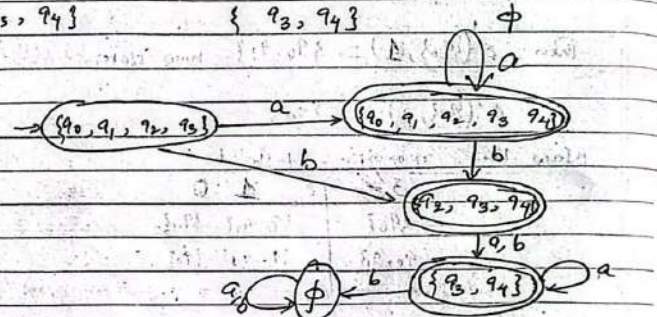 s, q4} { q3, q4} ϕ
a
→ {q0, q1, q2, q3} a {q0, q1, q2, q3 q4}
b b
{q2, q3, q4}
a, b
a, b ϕ b {q3, q4} a